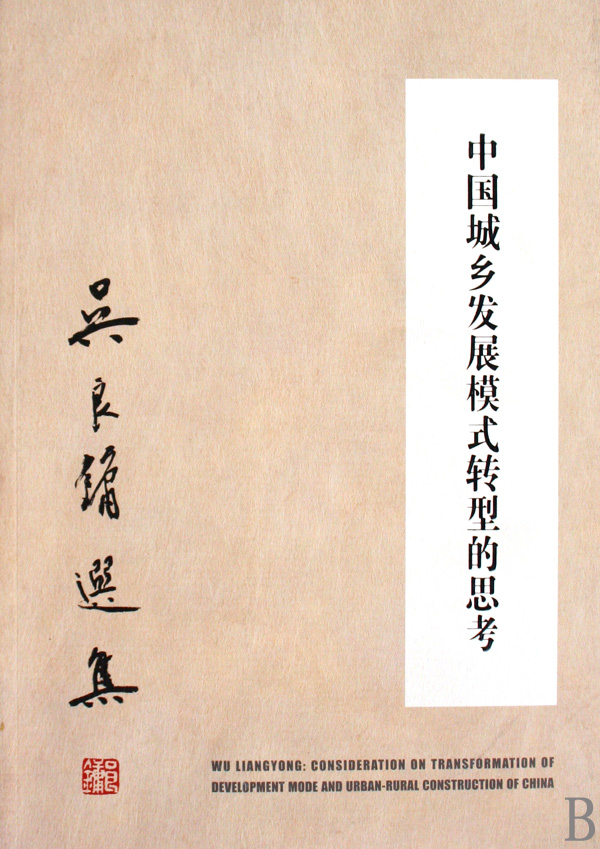 中国城乡发展模式转型的思考
吳良鏞選集
WU LIANGYONG: CONSIDERATION ON TRANSFORMATION OF
DEVELOPMENT MODE AND URBAN-RURAL CONSTRUCTION OF CHINA
B